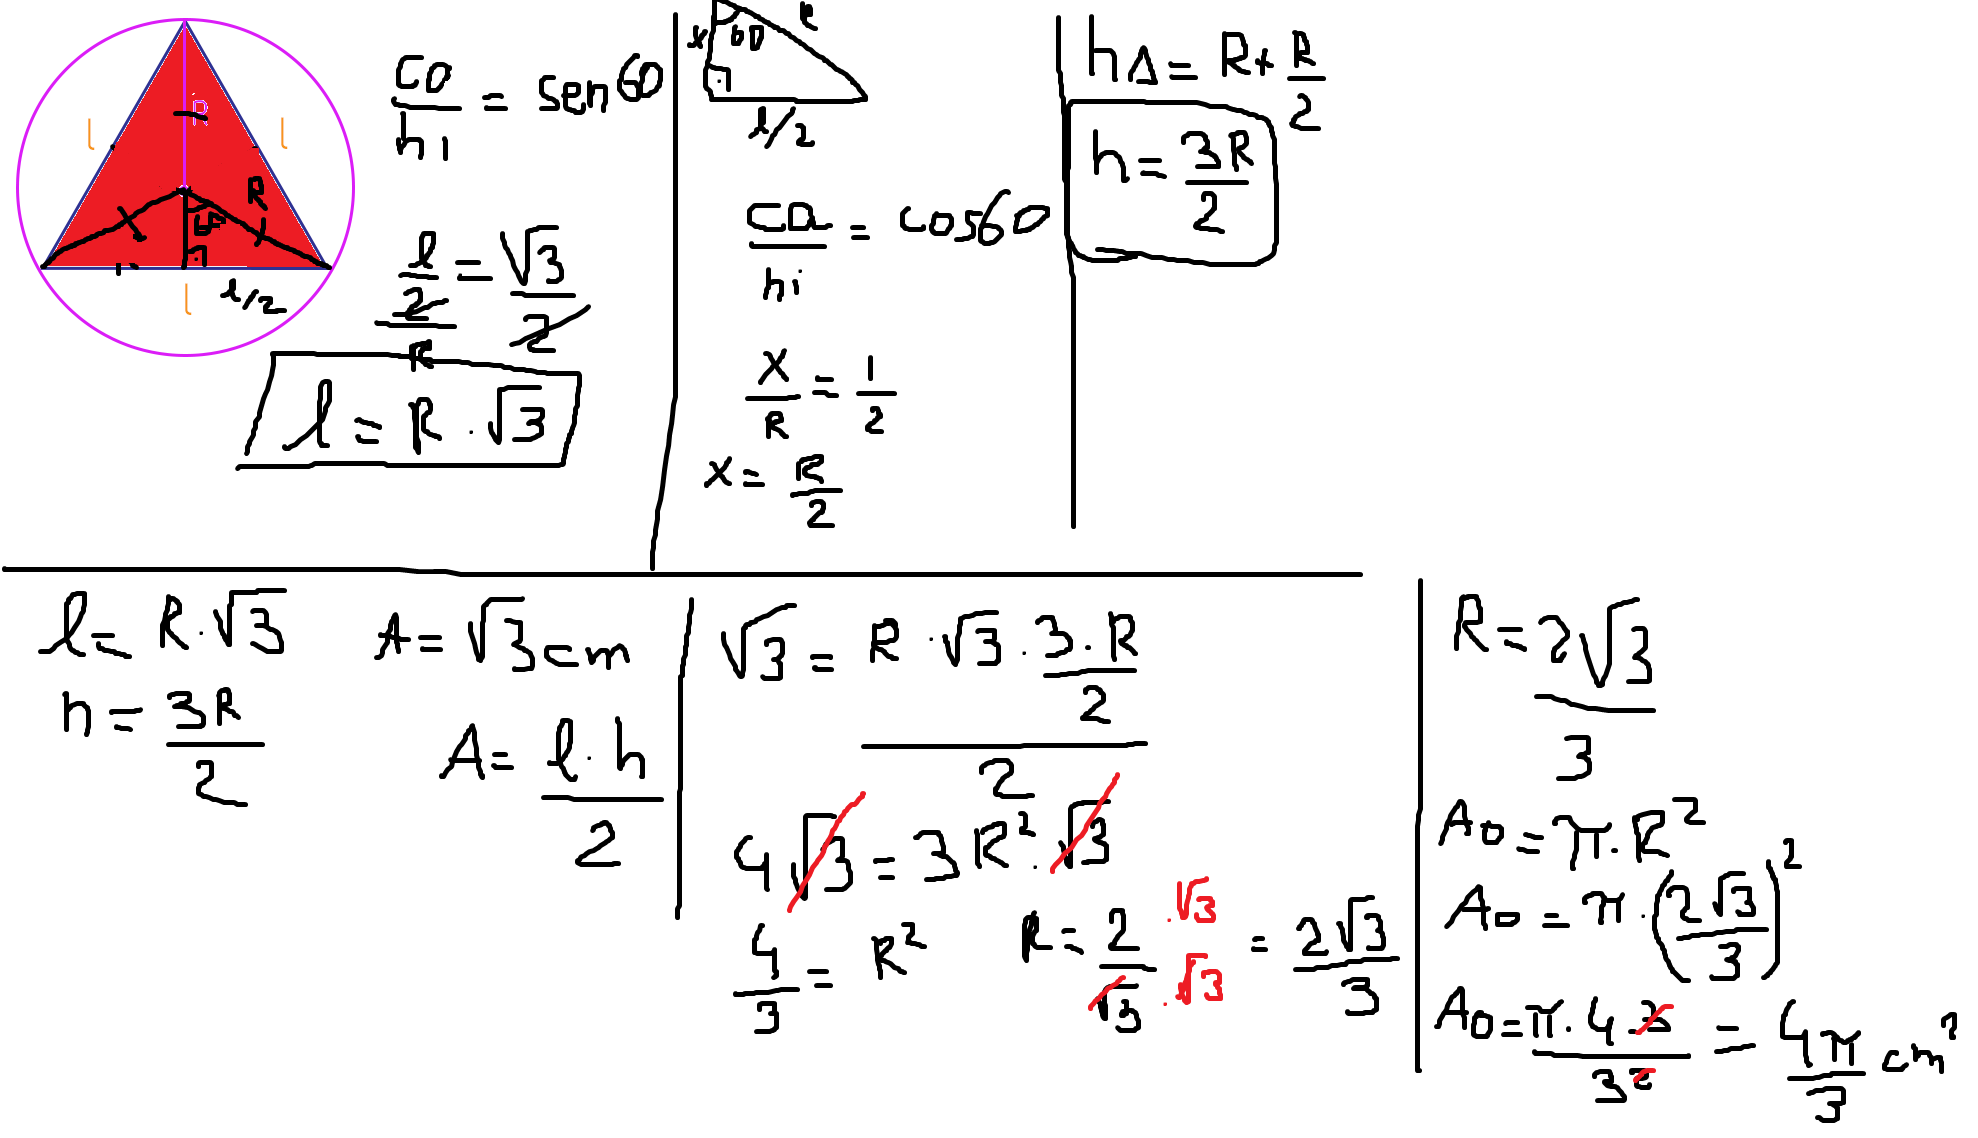 l
l
R
R
60
l
l/2
co/hi = sen60
(l/2)/R = √3/2
l = R · √3
x
60
R
l/2
ca/hi = cos60
x/R = 1/2
x = R/2
h△ = R + R/2
h = 3R/2
l = R · √3
h = 3R/2
A = √3 cm
A = l · h/2
√3 = (R · √3 · 3 · R/2)/2
4√3 = 3R² · √3
4/3 = R²
R = 2/√3 · √3/· √3 = 2√3/3
R = 2√3/3
Ao = π · R²
Ao = π · (2√3/3)²
Ao = π · 4 · 3/3² = 4π/3 cm²